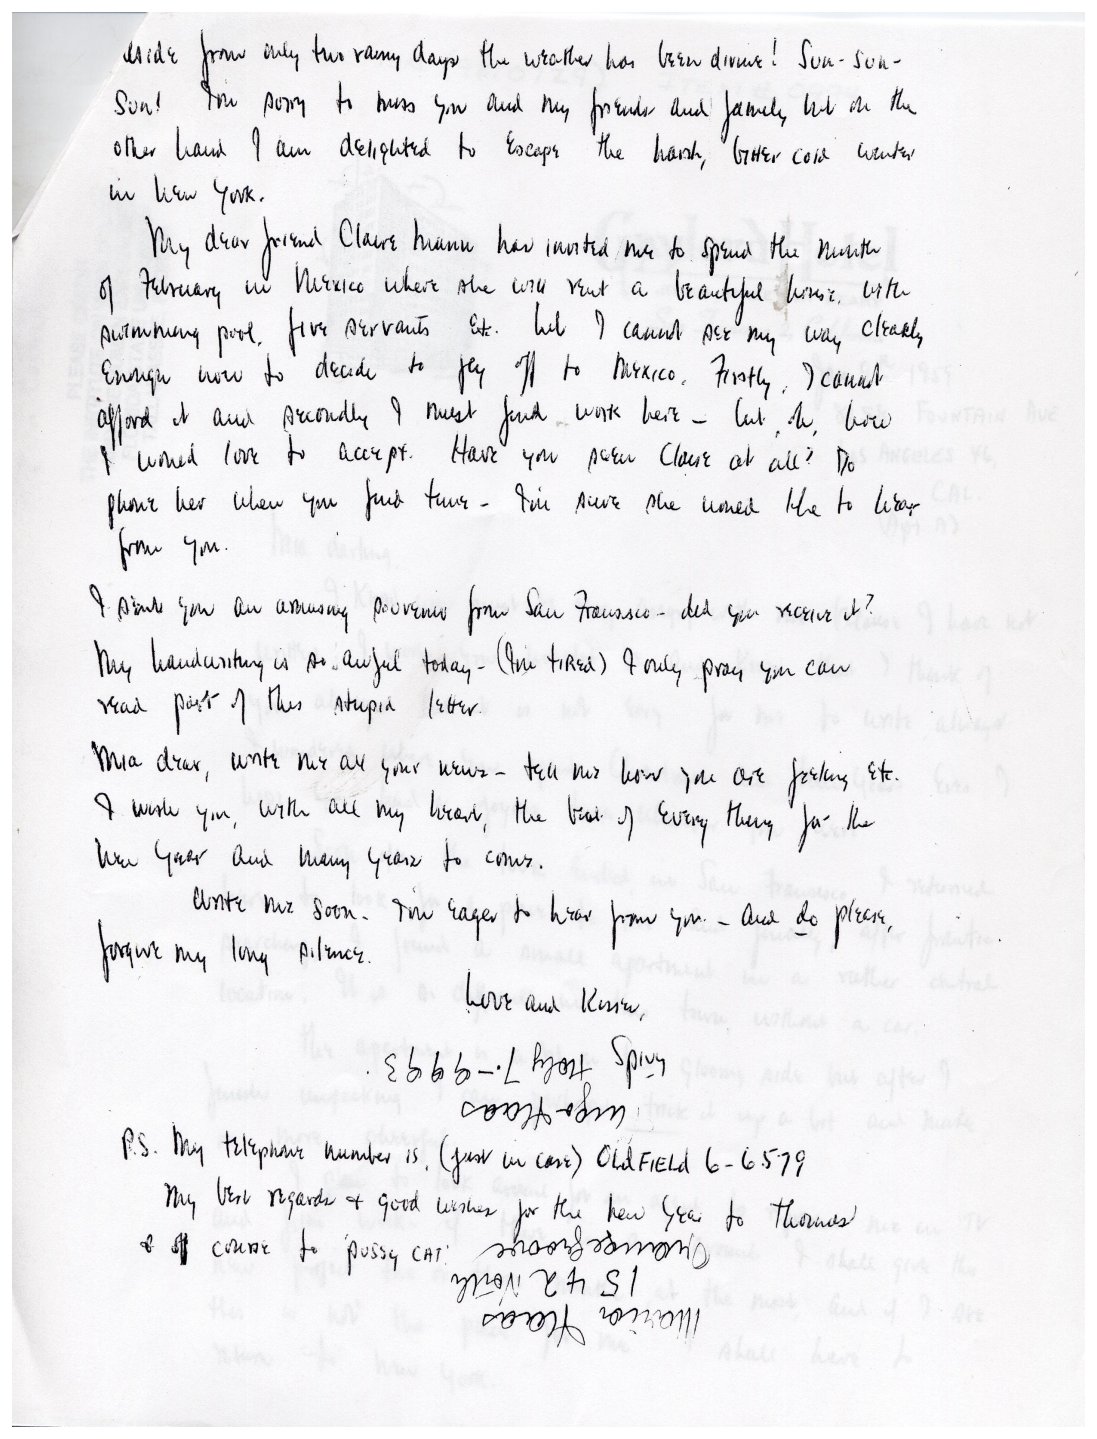 aside from only two rainy days the weather has been divine! Sun-Sun-
Sun! I'm sorry to miss you and my friends and family but on the
other hand I am delighted to escape the harsh, bitter cold winter
in New York.
My dear friend Claire Mann has invited me to spend the month
of February in Mexico where she will rent a beautiful house, with
swimming pool, five servants etc. but I cannot see my way clearly
enough now to decide to fly off to Mexico. Firstly, I cannot
afford it and secondly I must find work here – but, oh, how
I would love to accept. Have you seen Claire at all? Do
phone her when you find time – I'm sure she would like to hear
from you.
I sent you an amusing souvenir from San Francisco – did you receive it?
My handwriting is so awful today – (I'm TIRED) I only pray you can
read part of this stupid letter.
Mia dear, write me all your news – tell me how you are feeling etc.
I wish you, with all my heart, the best of every thing for the
New Year and many years to come.
Write me soon – I'm eager to hear from you – and do please,
forgive my long silence.
Love and Kisses,
Hugo Haas
Holy 7.-9993.
P.S. My telephone number is, (just in case) OLDFIELD 6-6579
My best regards & good wishes for the New Year to Thomas
& off course to 'pussy CAT'
Marian Haas
1542 North
Orangegroove